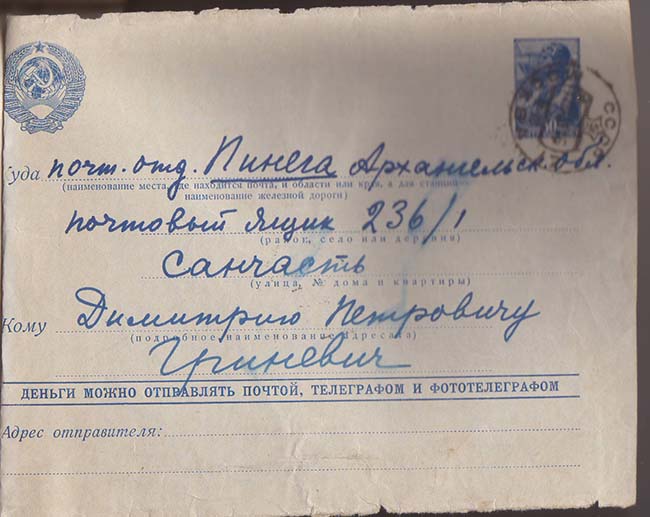 Куда почт. отд. Пинега Архангельск. обл.
(наименование места, где находится почта, и области или края, а для станций —
наименование железной дороги)
почтовый ящик 236/1
(район, село или деревня)
санчасть
(улица, № дома и квартиры)
Кому Димитрию Петровичу
(подробное наименование адресата)
Гриневич
ДЕНЬГИ МОЖНО ОТПРАВЛЯТЬ ПОЧТОЙ, ТЕЛЕГРАФОМ И ФОТОТЕЛЕГРАФОМ
Адрес отправителя: